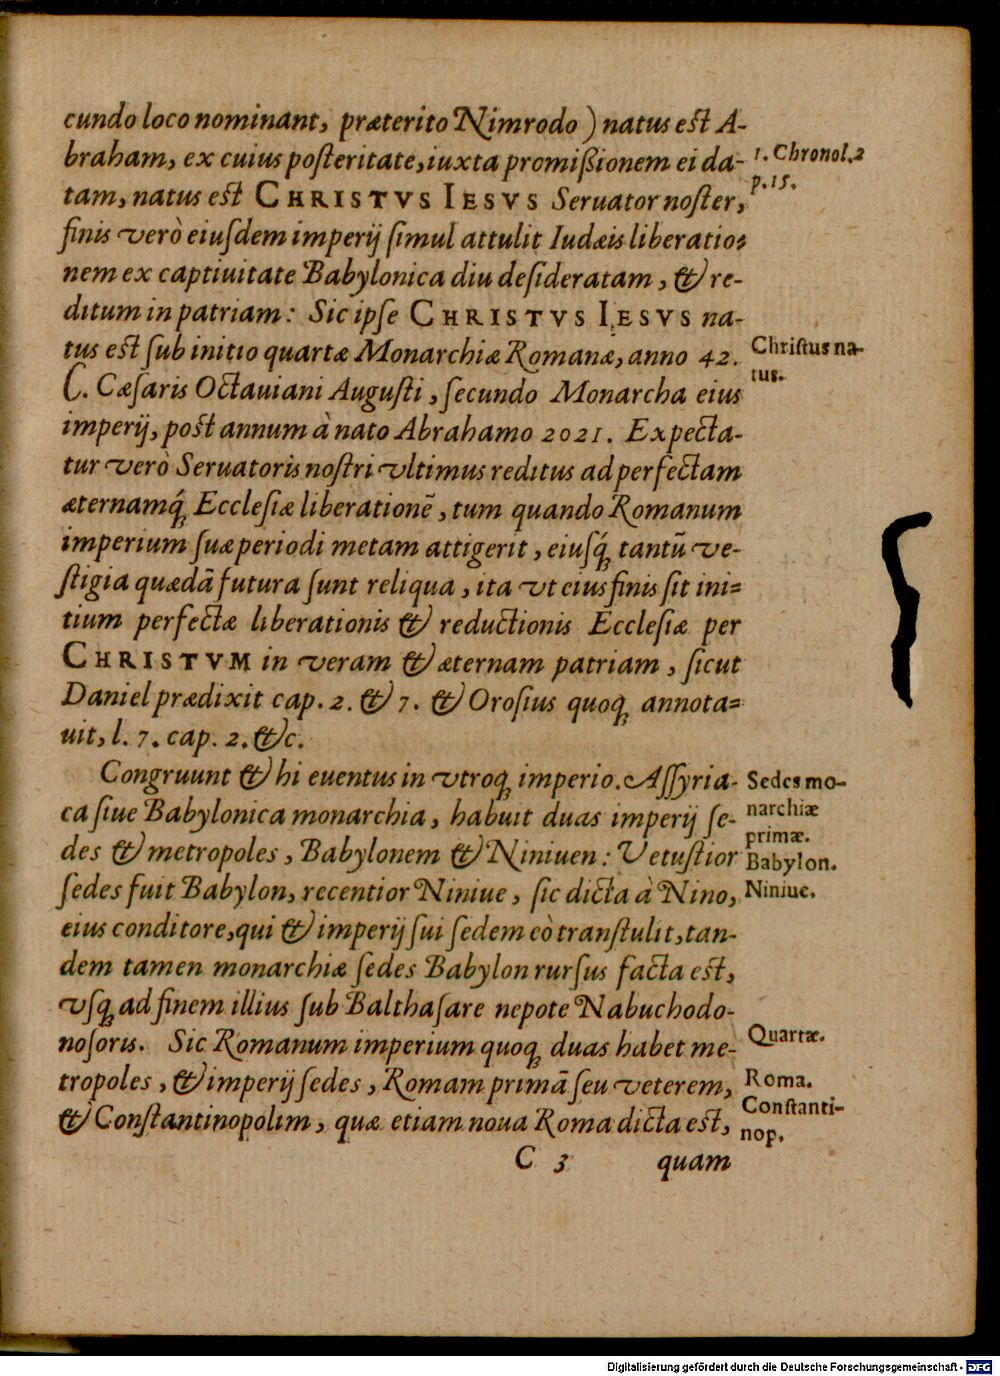 cundo loco nominant, præterito Nimrodo) natus est A-
braham, ex cuius posteritate, iuxta promißionem ei da-
tam, natus est CHRISTVS IESVS Seruator noster,
finis verò eiusdem imperij simul attulit Iudæis liberatio-
nem ex captiuitate Babylonica diu desideratam, & re-
ditum in patriam: Sic ipse CHRISTVS IESVS na-
tus est sub initio quartæ Monarchiæ Romanæ, anno 42.
C. Cæsaris Octauiani Augusti, secundo Monarcha eius
imperij, post annum à nato Abrahamo 2021. Expecta-
tur verò Seruatoris nostri vltimus reditus ad perfectam
æternamq́; Ecclesiæ liberationē, tum quando Romanum
imperium suæ periodi metam attigerit, eiusq́; tantũ ve-
stigia quædā futura sunt reliqua, ita vt eius finis sit ini-
tium perfectæ liberationis & reductionis Ecclesiæ per
CHRISTVM in veram & æternam patriam, sicut
Daniel prædixit cap. 2. & 7. & Orosius quoq; annota-
uit, l. 7. cap. 2. &c.
Congruunt & hi euentus in vtroq; imperio. Assyria-
ca siue Babylonica monarchia, habuit duas imperij se-
des & metropoles, Babylonem & Niniuen: Vetustior
sedes fuit Babylon, recentior Niniue, sic dicta à Nino,
eius conditore, qui & imperij sui sedem eò transtulit, tan-
dem tamen monarchiæ sedes Babylon rursus facta est,
vsq; ad finem illius sub Balthasare nepote Nabuchodo-
nosoris. Sic Romanum imperium quoq; duas habet me-
tropoles, & imperij sedes, Romam primā seu veterem,
& Constantinopolim, quæ etiam noua Roma dicta est,
C 3 quam
1. Chronol. 2
p. 15.
Christus na-
tus.
Sedes mo-
narchiæ
primæ.
Babylon.
Niniue.
Quartæ.
Roma.
Constanti-
nop.
Digitalisierung gefördert durch die Deutsche Forschungsgemeinschaft - DFG